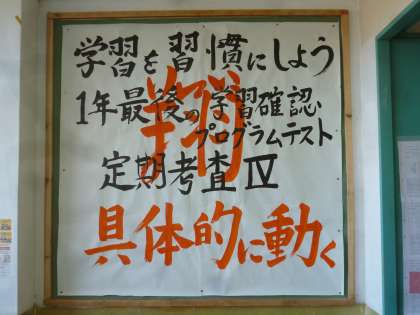 学習を習慣にしよう
1年最後の学習確認
プログラムテスト
定期考査Ⅳ
具体的に動く